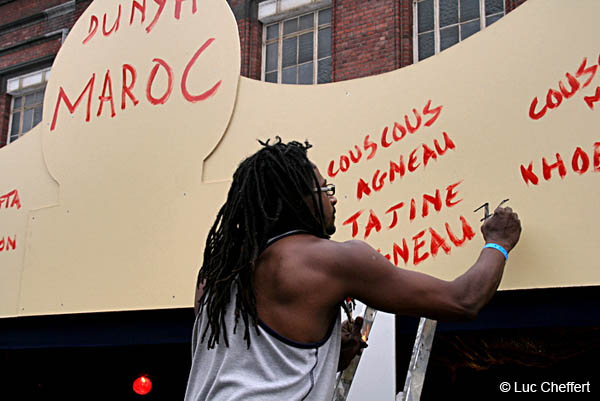 DUNYA
MAROC
COUSCOUS
AGNEAU
TAJINE
AGNEAU
KHOB
© Luc Cheffert